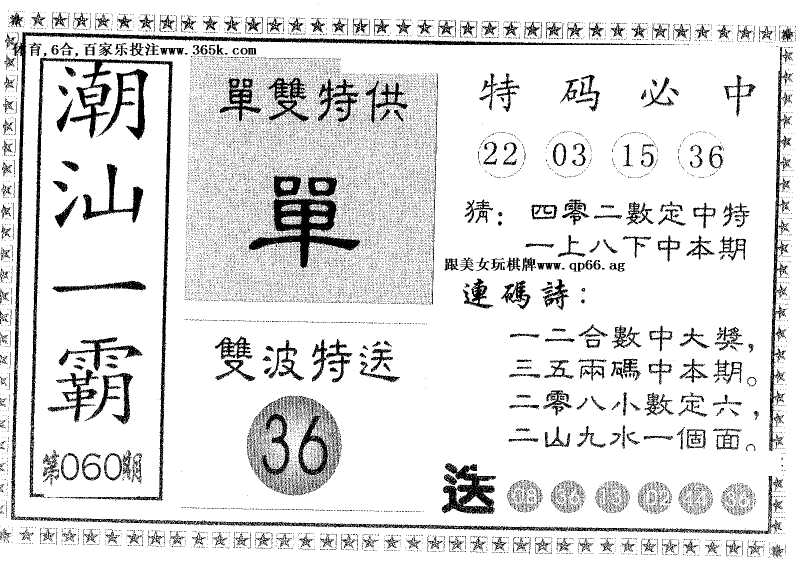 体育,6合,百家乐投注www.365k.com
潮汕一霸
第060期
單雙特供
單
雙波特送
36
特码必中
22 03 15 36
猜：四零二數定中特
一上八下中本期
跟美女玩棋牌www.qp66.ag
連碼詩：
一二合數中大獎，
三五兩碼中本期。
二零八小數定六，
二山九水一個面。
送 08 36 13 02 44 38